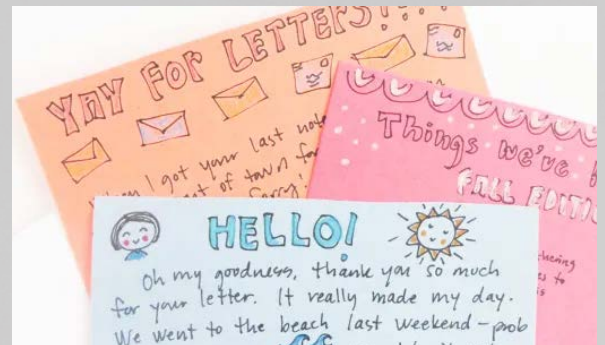 YAY FOR LETTERS!
I got your last note
of town for
Sorry!
Things we've
FALL EDITION
HELLO!
Oh my goodness, thank you so much
for your letter. It really made my day.
We went to the beach last weekend - prob